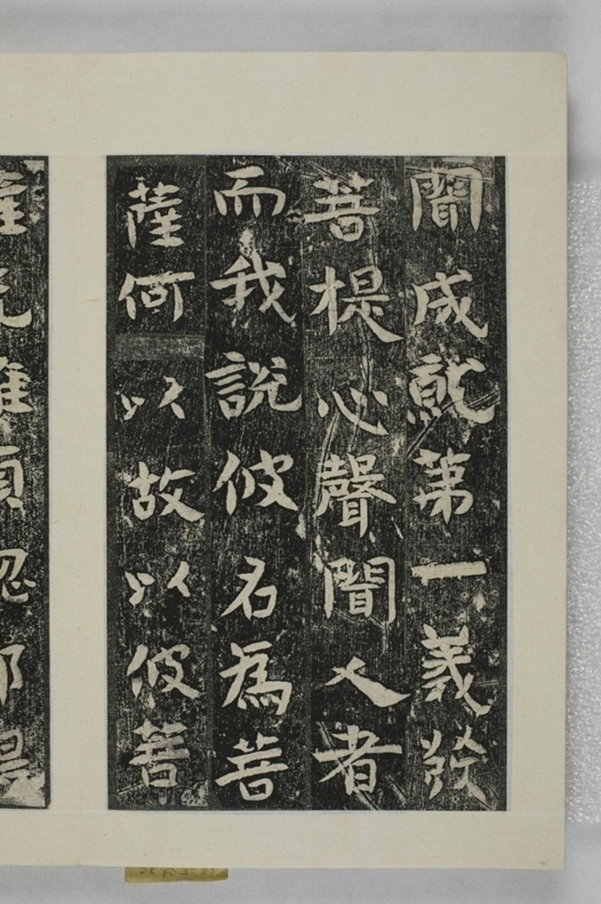 聞成就第一義發
菩提心聲聞人者
而我說彼名為菩
薩何以故以彼菩